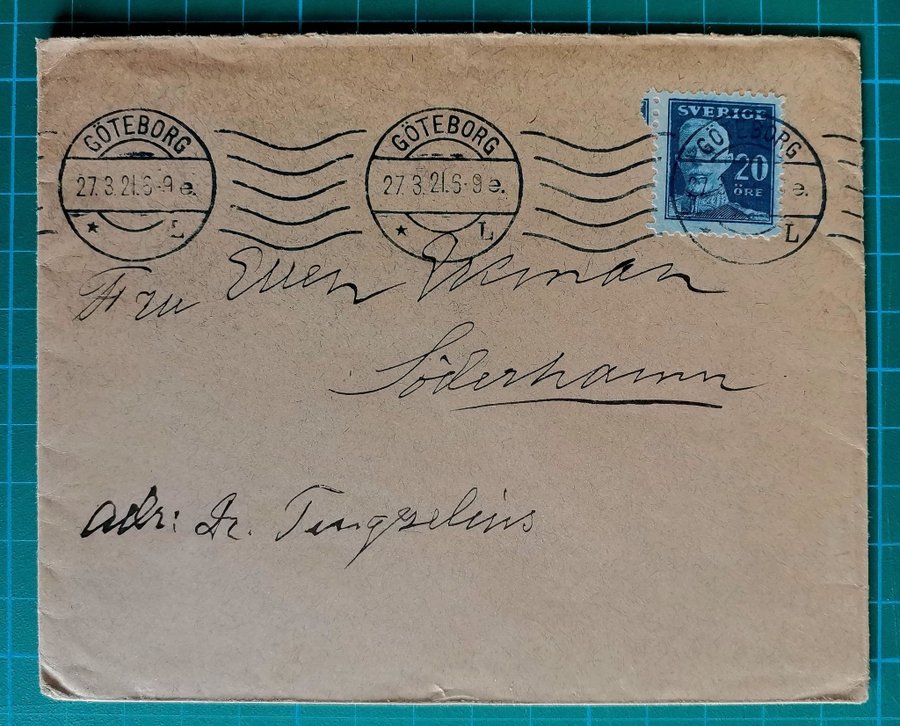 GÖTEBORG
27.3.21.6-9 e.
L
GÖTEBORG
27.3.21.6-9 e.
L
SVERIGE
20
ÖRE
GÖTEBORG
27 e.
L
Fru Ellen Ekman
Söderhamn
adr: Dr.